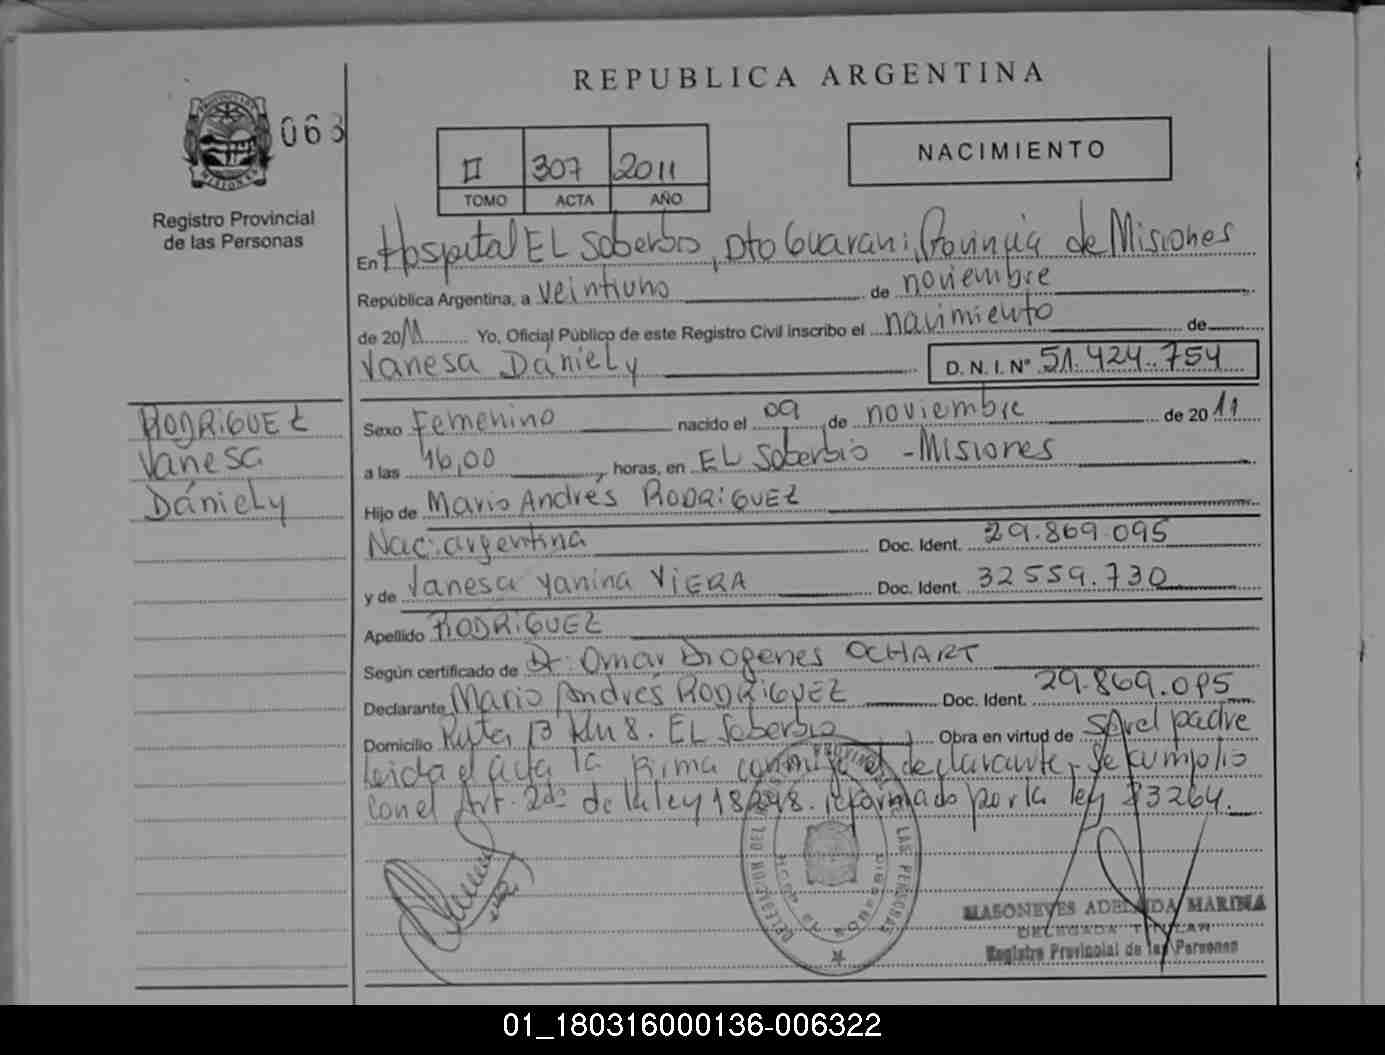 REPUBLICA ARGENTINA
063
II 307 2011
TOMO ACTA AÑO
NACIMIENTO
Registro Provincial
de las Personas
En Hospital EL Soberbio, Dto Guarani, Provincia de Misiones
República Argentina, a veintiuno de noviembre
de 2011 Yo, Oficial Público de este Registro Civil inscribo el nacimiento de
Vanesa Dániely D.N.I. Nº 51.424.754
RODRIGUEZ
Vanesa
Dániely
Sexo Femenino nacido el 09 de noviembre de 2011
a las 16,00 horas, en EL Soberbio - Misiones
Hijo de Mario Andrés RODRIGUEZ
Nac. argentina Doc. Ident. 29.869.095
y de Vanesa Yanina VIERA Doc. Ident. 32559.730
Apellido RODRIGUEZ
Según certificado de Dr. Omar Diogenes OCHART
Declarante Mario Andrés RODRIGUEZ Doc. Ident. 29.869.095
Domicilio Ruta 13 Km 8. EL Soberbio Obra en virtud de ser el padre
leida el acta la firma conmigo el declarante, se cumplio
con el Art. 2do de la ley 18248. reformado por la ley 23264.
MASONEVES ADELAIDA MARINA
DELEGADA TITULAR
Registro Provincial de las Personas
01_180316000136-006322